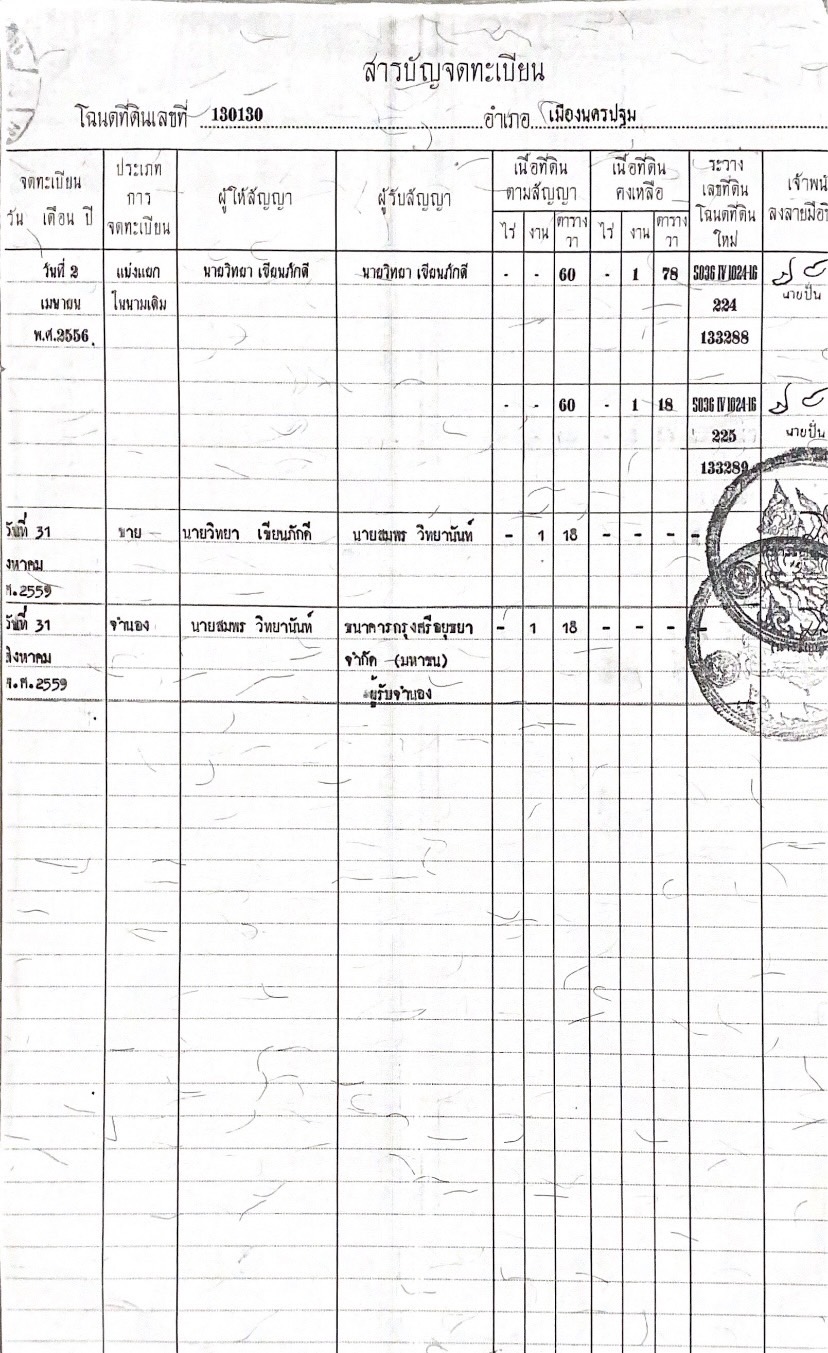 สารบัญจดทะเบียน
โฉนดที่ดินเลขที่ 130130 อำเภอ เมืองนครปฐม
จดทะเบียน
วัน เดือน ปี
ประเภท
การ
จดทะเบียน
ผู้ให้สัญญา
ผู้รับสัญญา
เนื้อที่ดิน
ตามสัญญา
ไร่ งาน ตาราง
วา
เนื้อที่ดิน
คงเหลือ
ไร่ งาน ตาราง
วา
ระวาง
เลขที่ดิน
โฉนดที่ดิน
ใหม่
เจ้าพน
ลงลายมือ
วันที่ 2 แบ่งแยก นายวิทยา เขียนภักดี นายวิทยา เขียนภักดี - - 60 - 1 78 5036 IV 1024-16
เมษายน ในนามเดิม 224 นายปั่น
พ.ศ.2556 133288
- - 60 - 1 18 5036 IV 1024-16
225 นายปั่น
133289
วันที่ 31 ขาย นายวิทยา เขียนภักดี นายสมพร วิทยานันท์ - 1 18 - - - -
งหาคม
ศ.2559
วันที่ 31 จำนอง นายสมพร วิทยานันท์ ธนาคารกรุงศรีอยุธยา - 1 18 - - - -
สิงหาคม จำกัด (มหาชน)
พ.ศ.2559 ผู้รับจำนอง